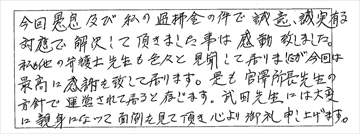 今回愚息及び私の過払金の件で誠意、誠実有る
対應で解決して頂きました事は感動致しました。
私も他の弁護士先生も色々と見聞して居りますが今回は
最高に感謝を致して居ります。是も官澤所長先生の
方針で運営されて居ると存じます。武田先生には大変
に親身になって面倒を見て頂き心より御礼申し上げます。